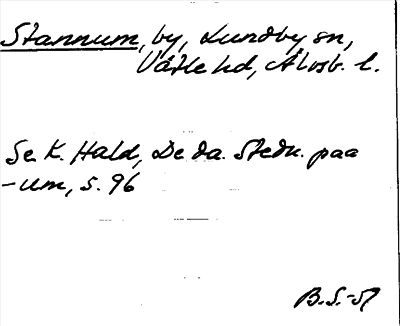 Stannum, by, Lundby sn,
Vätle hd, Älvsb. l.
Se K. Hald, De da. Stedn. paa
-um, s. 96
B.S.-57